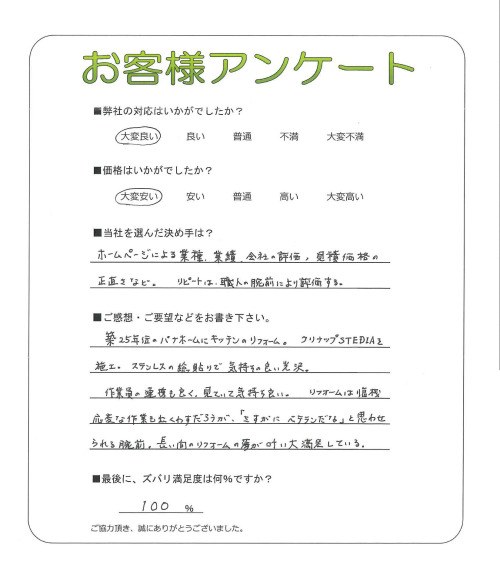 お客様アンケート
■弊社の対応はいかがでしたか?
大変良い 良い 普通 不満 大変不満
■価格はいかがでしたか?
大変安い 安い 普通 高い 大変高い
■当社を選んだ決め手は?
ホームページによる業種、業績、会社の評価、見積価格の
正直さなど。 リピートは、職人の腕前により評価する。
■ご感想・ご要望などをお書き下さい。
築25年位のパナホームにキッチンのリフォーム。 クリナップSTEDIAを
施工。 ステンレスの総貼りで気持ちの良い光沢。
作業員の連携も良く、見ていて気持ち良い。 リフォームは臨機
応変な作業も必ずだろうが、「さすがにベテランだな」と思わせ
られる腕前。長い間のリフォームの夢が叶い大満足している。
■最後に、ズバリ満足度は何%ですか?
100 %
ご協力頂き、誠にありがとうございました。